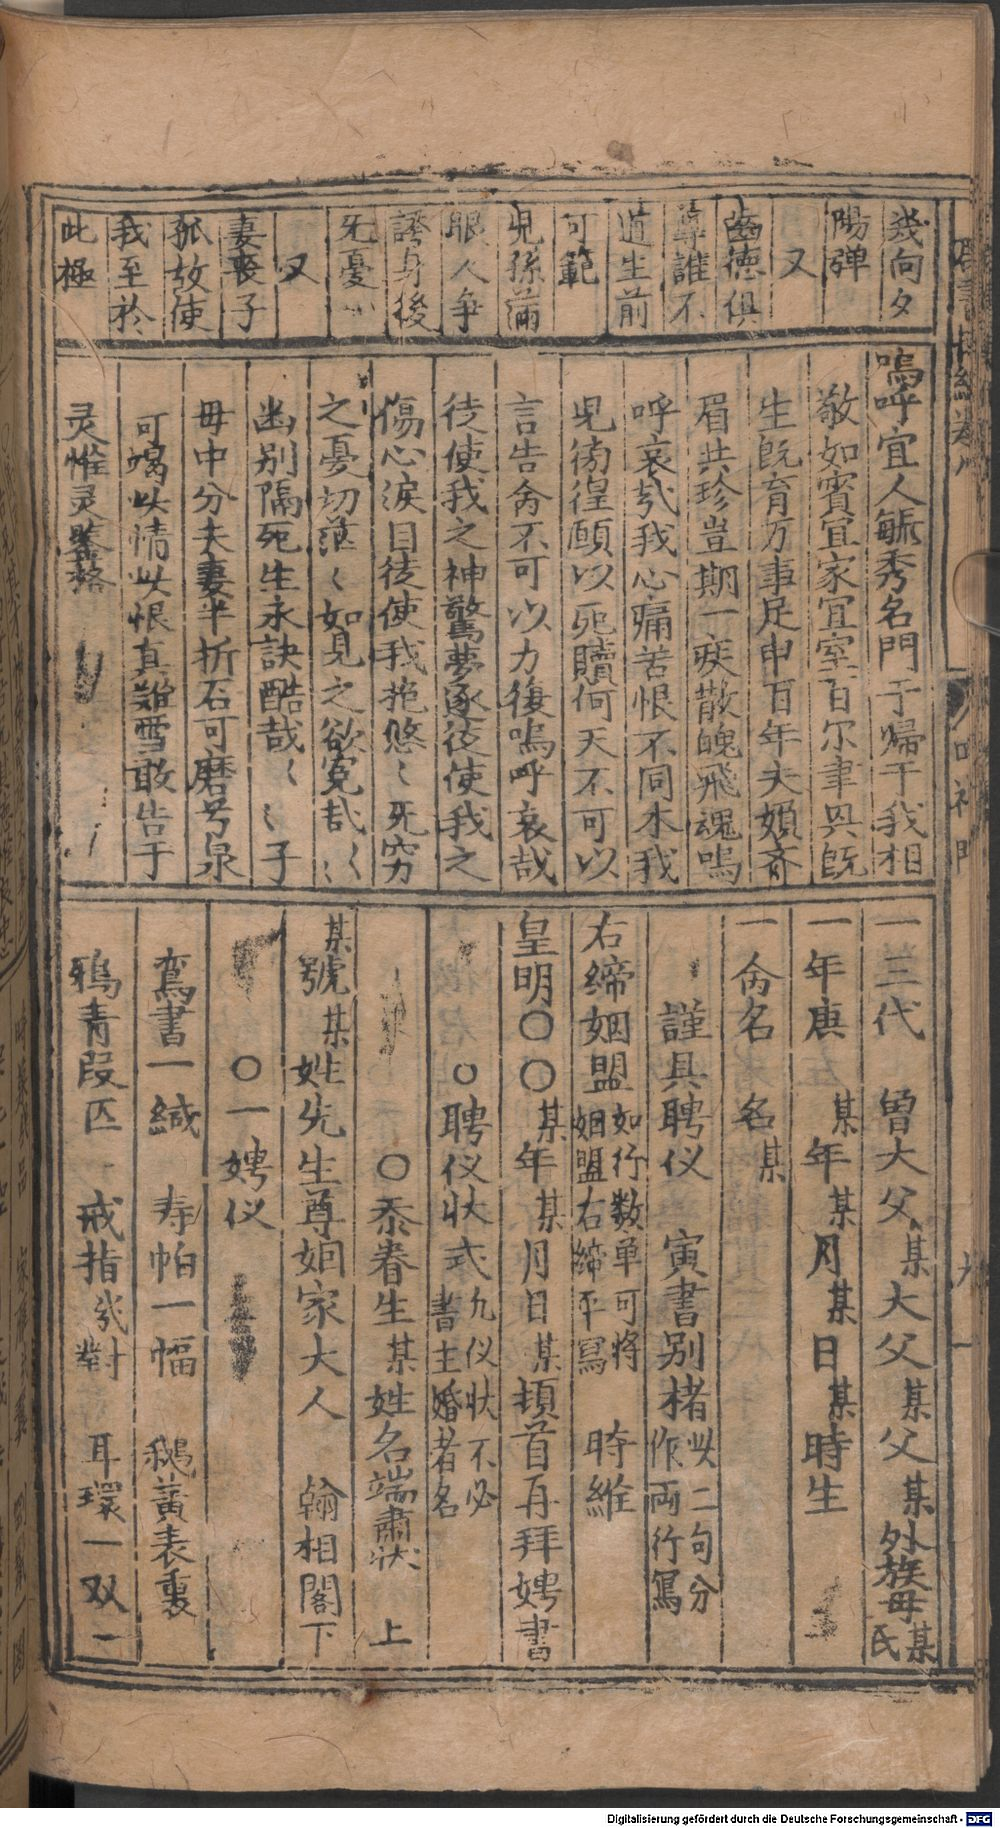 幾向夕
陽弹
又
齒德俱
尊誰不
道生前
可範
児孫滿
眼人争
誇身後
旡憂
又
妻喪子
孤故使
我至於
此極
嗚呼宜人毓秀名門于歸于我相
敬如賓宜家宜室百尔聿興旣
生旣育万事足申百年夫婦斉
眉共珍豈期一疾散魄飛魂嗚
呼哀㢤我心痛苦恨不同木我
児徬徨願以死贖何天不可以
言告命不可以力復嗚呼哀哉
徒使我之神驚夢逐徒使我之
傷心淚目徒使我抱悠〻旡穷
之憂切茫〻如見之欲寃哉〻〻
幽别隔死生永訣酷哉〻〻子
母中分夫妻半折石可磨号泉
可竭此情此恨真难雪敢告于
灵惟灵鑒格
一三代 曽大父某大父某父某外族母某氏
一年庚 某年某月某日某時生
一命名 名某
謹具聘仪 寅書别楮此二句分作両行寫
右締姻盟如行数单可将姻盟右締平寫 時維
皇明〇〇某年某月日某頓首再拜娉書
〇聘仪状式九仪状不必書主婚者名
〇忝眷生某姓名端肅状 上
某號某姓先生尊姻家大人 翰相閣下
〇一娉仪
鸞書一緘 寿帕一幅 鵝黃表裏
鴉青叚匹 戒指㡬對 耳環一双一